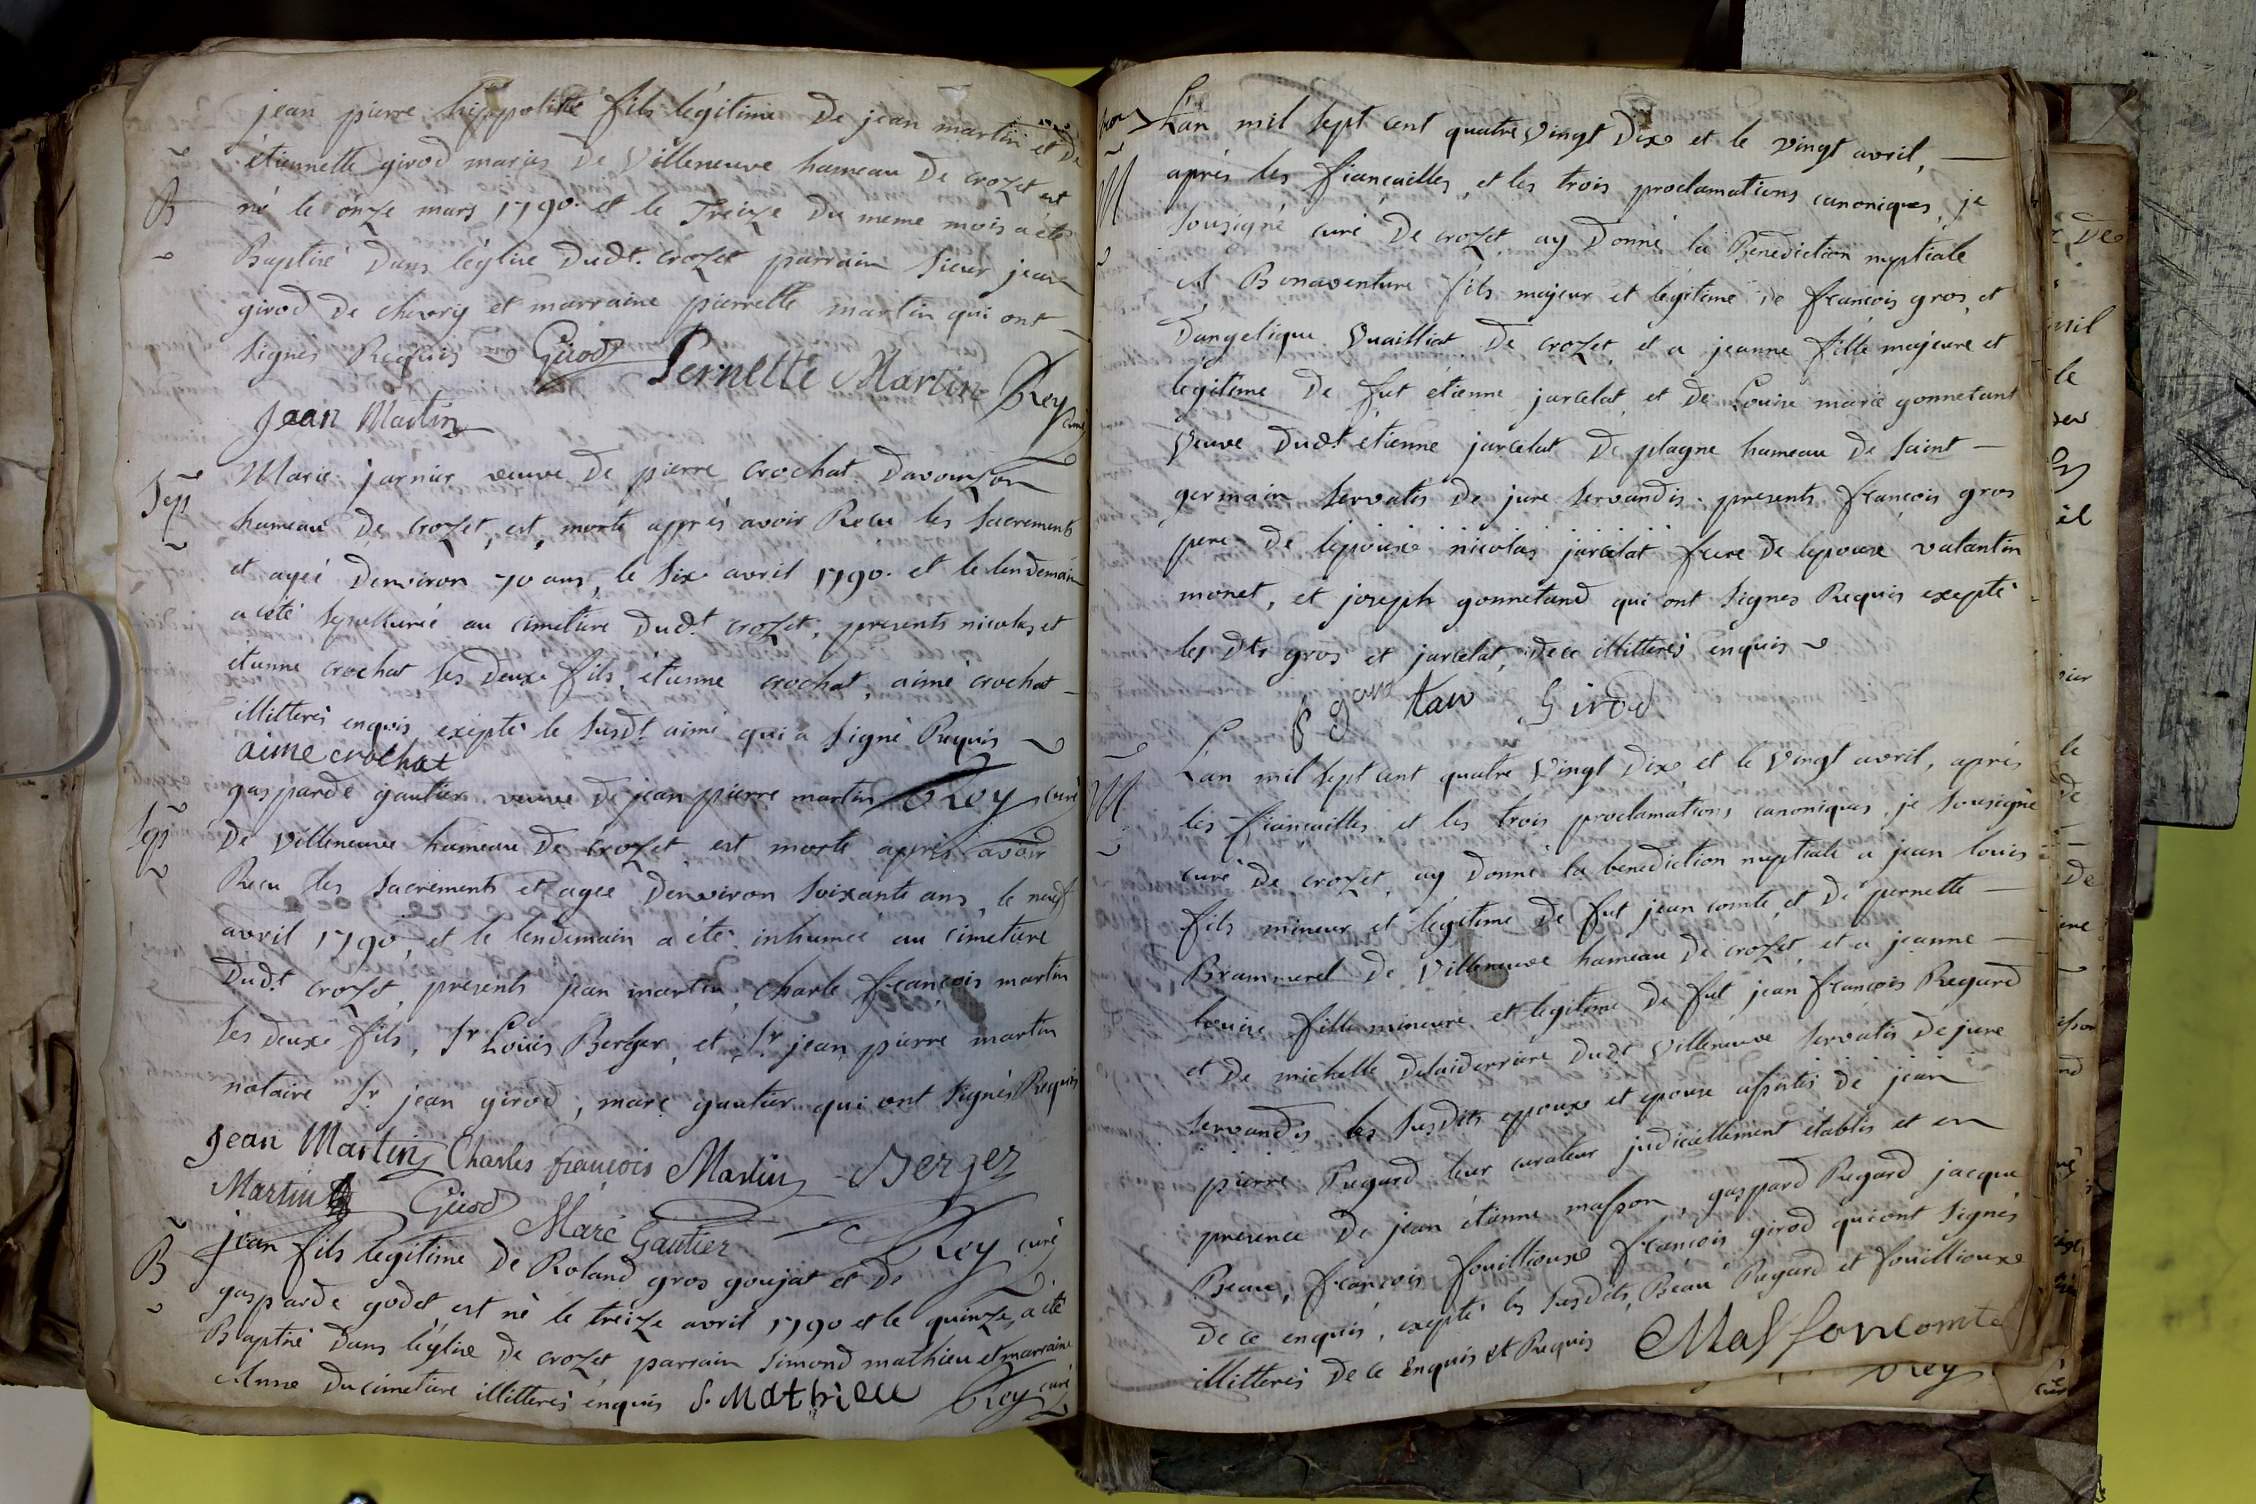 jean pierre hippolitte fils légitime De jean martin et De
étiennette girod maries De Villeneuve hameau De crozet est
B
né le onze mars 1790. et le Treize Du meme mois a été
Baptisé Dans léglise Dudt. crozet parrain sieur jean
girod De chevry et marraine pierrette martin qui ont
signés Requis Girod Pernette Martin Rey curé
Jean Martin
Sep
Marie jarnier veuve De pierre crochat Davouzon
hameau De crozet, est, morte apprés avoir Recu les sacrements
et ageé Denviron 70 ans, le six avril 1790. et le lendemain
a été sepulturéé au cimetiere Dudt. crozet, presents nicolas et
etienne crochat ses Deux fils, étienne crochat, aimé crochat
illitterés enquis exepté le susdt. aimé qui a signé Requis
aime crochat
gasparde gautier veuve De jean pierre martin Rey curé
Sep
De Villeneuve hameau De crozet est morte apprés avoir
Recu les sacrements et agee Denviron soixante ans, le neuf
avril 1790, et le lendemain a été inhumeé au cimetiere
Dudt. crozet, présents jean martin, charle françois martin
ses deux fils, Sr Loüis Berger, et Sr. jean pierre martin
notaire Sr. jean girod, marc gautier qui ont signés Requis
Jean Martin Charles françois Martin Berger
Martin Girod Marc Gautier Rey curé
B
jean fils legitime De Roland gros goujat et De
gasparde godet est né le treize avril 1790 et le quinze, a été
Baptisé Dans léglise De crozet, parrain simond mathieu et marraine
Anne Ducimetiere illitterés enquis S. Mathieu Rey curé
Lan mil sept cent quatre Vingt Dix et le vingt avril,
M
aprés les fiancailles, et les trois proclamations canoniques, je
sousigné curé De crozet, ay Donné la Benediction nuptiale
A Bonaventure fils majeur et légitime De françois gros, et
Dangelique Vuailliat De crozet, et a jeanne fille majeure et
legitime De fut étienne jarcelat, et De Louise marie gonnetant
Veuve Dudt. etienne jarcelat De plagne hameau De saint
germain servatis De jure servandis. presents françois gros
pere De lepouxe nicolas jarcelat frere De lepouse valantin
monet, et joseph gonnetand qui ont signes Requis exepté
les Dts gros et jarcelat, De ce illitterés enquis
Girod
M
Lan mil sept cent quatre Vingt Dix, et le Vingt avril, aprés
les fiancailles, et les trois proclamations canoniques, je sousigné
curé De crozet, ay Donné la benediction nuptiale a jean louis
fils mineur et légitime De fut jean comte, et De pernette
Brammerel De Villeneuve hameau De crozet, et a jeanne
louise fille mineure et legitime De fut jean françois Regard
et De michelle Delaiderriere Dudt Villeneuve servatis De jure
servandis les susdits epoux et epouse assistés De jean
pierre Regard leur curateur judiciellement établis et en
presence De jean étienne masson, gaspard Regard jacque
Beau, françois fouillioux françois girod qui ont signés
De ce enquis, exepté les susdits, Beau Regard et fouillioux
illitterés De ce enquis et Requis Masson comte
Rey